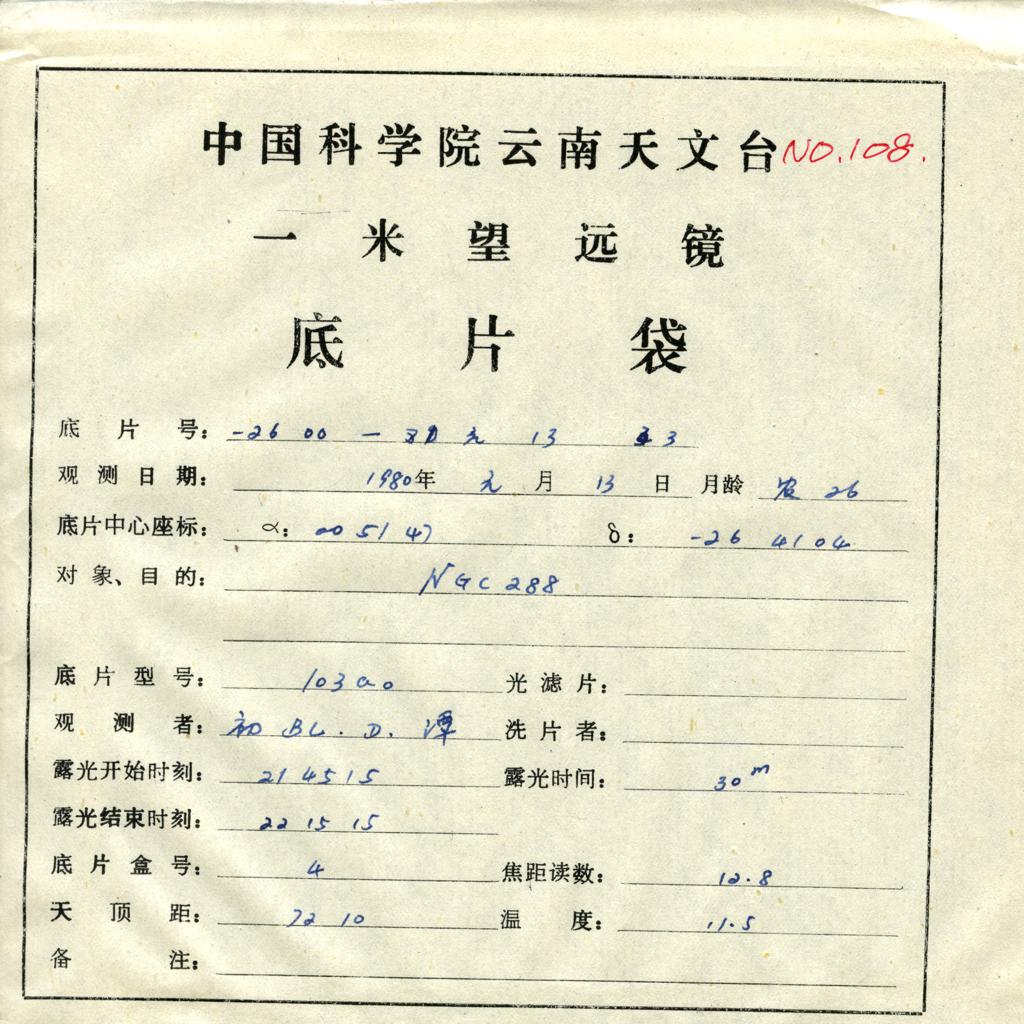 中国科学院云南天文台 NO.108.
一米望远镜
底片袋
底片号: -26 00 — 80 元 13 3
观测日期: 1980年 元 月 13 日 月龄 农 26
底片中心座标: α: 00 51 47 δ: -26 41 04
对象、目的: NGC 288
底片型号: 103aO 光滤片:
观测者: 初 BL. D. 谭 洗片者:
露光开始时刻: 21 45 15 露光时间: 30m
露光结束时刻: 22 15 15
底片盒号: 4 焦距读数: 12.8
天顶距: 72 10 温度: 11.5
备注: